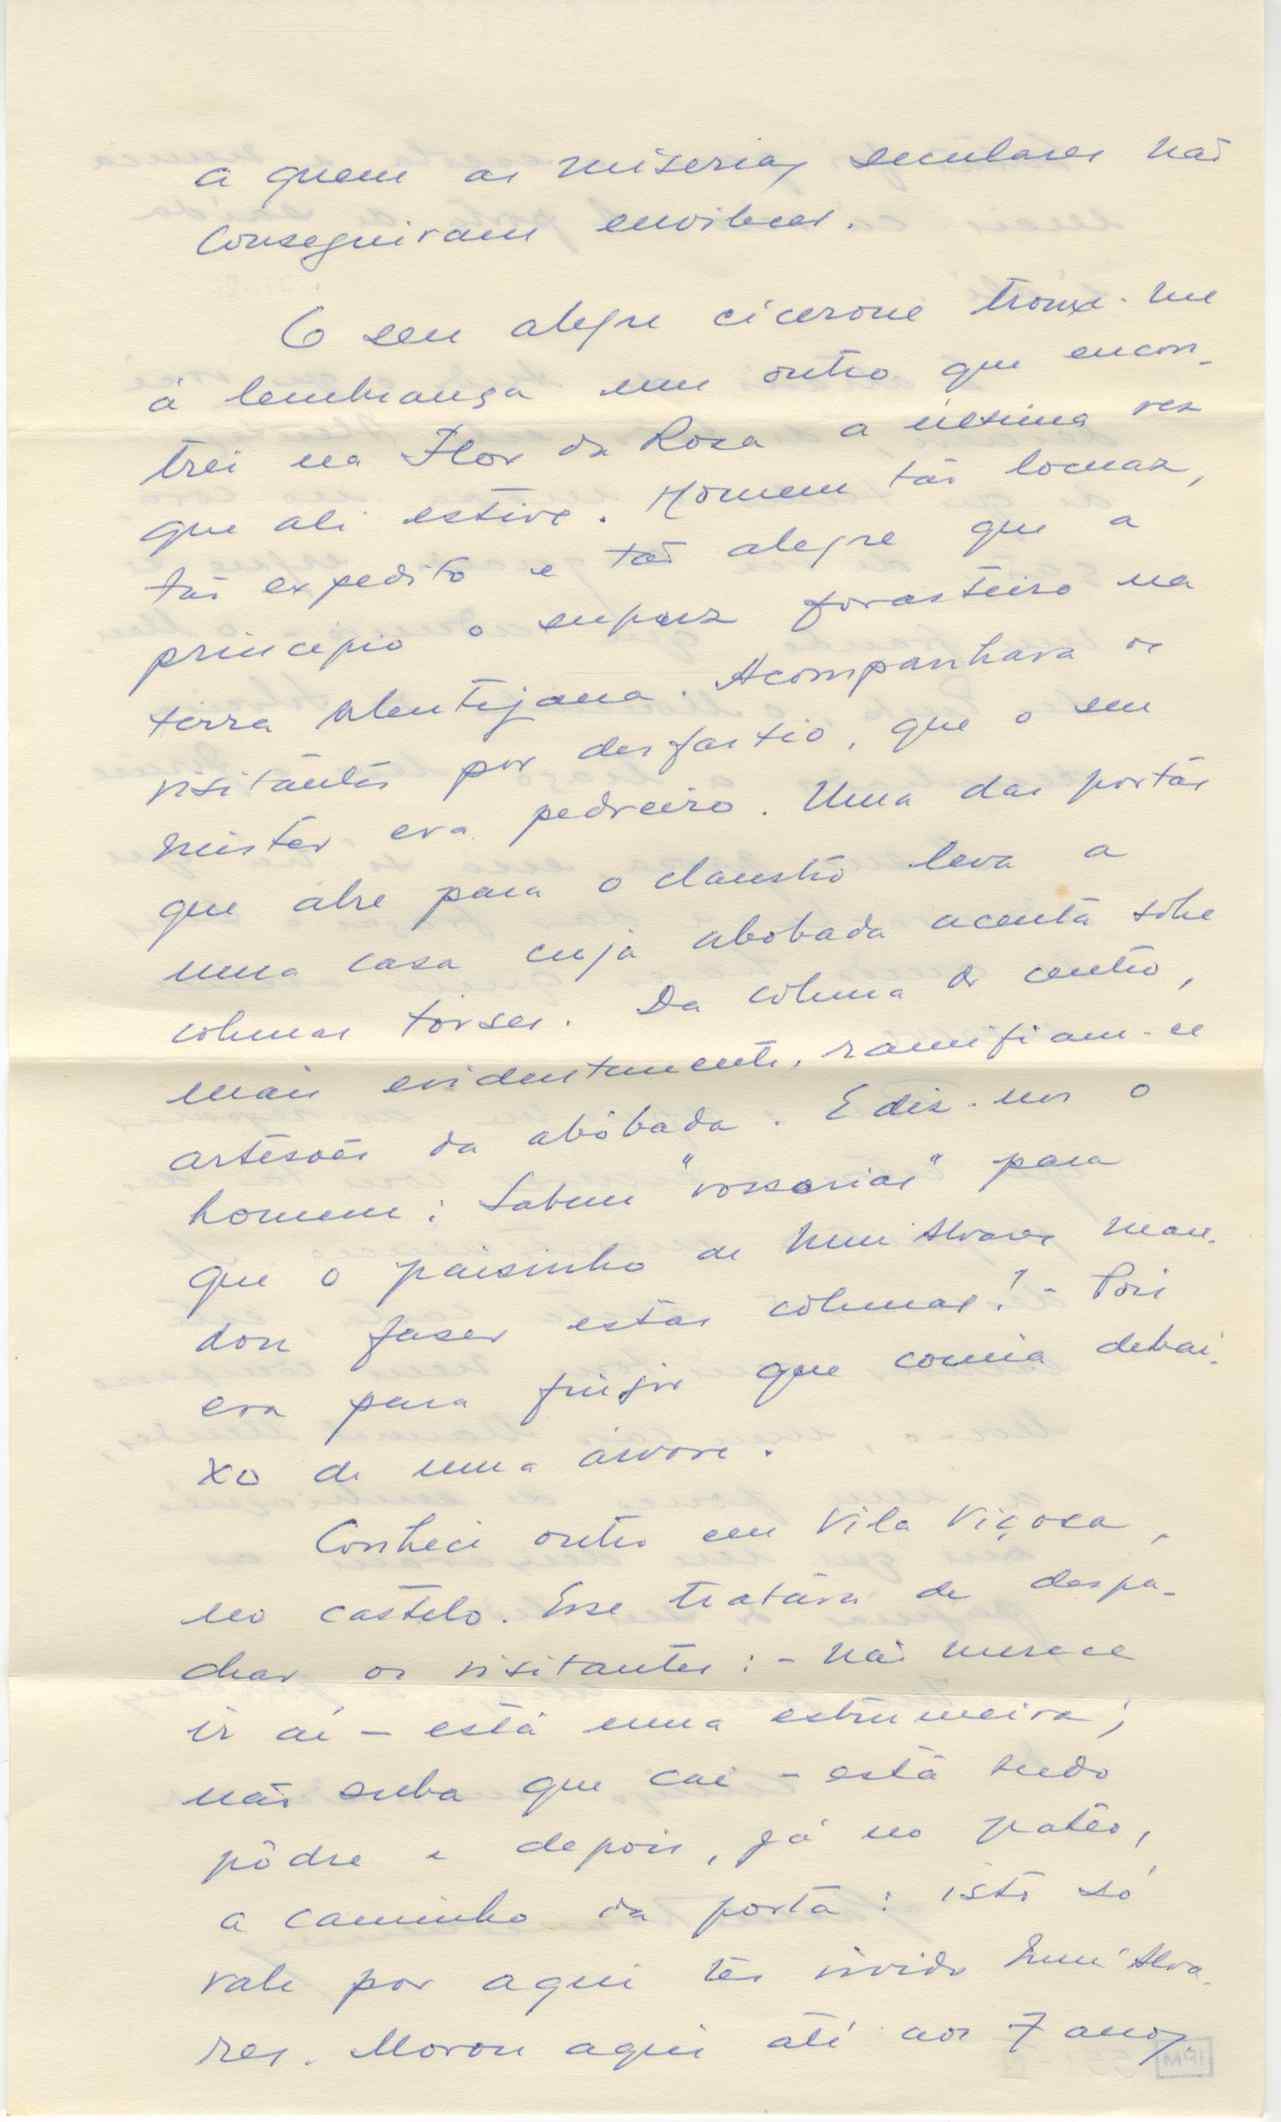 a quem as miserias seculares não
conseguiram envilecer.
O seu alegre cicerone trouxe-me
à lembrança um outro que encon-
trei na Flor da Rosa a última vez
que ali estive. Homem tão locuaz,
tão expedito e tão alegre que a
principio o supuz forasteiro na
terra alentejana. Acompanhava os
visitantes por desfastio, que o seu
mister era pedreiro. Uma das portas
que abre para o claustro leva a
uma casa cuja abobada acenta sobre
colunas torses. Da coluna do centro,
mais evidentemente, ramifiam-se
artesoes da abóbada. E diz-nos o
homem: Sabem "vossorias" para
que o paisinho de Nun'Alvares man-
dou faser estas colunas! - Pois
era para finjir que comia debai-
xo de uma árvore.
Conheci outro em Vila Viçosa,
no castelo. Esse tratava de despa-
char os visitantes: - não merece
ir aí - está uma estrumeira;
não suba que cai - está tudo
pôdre e depois, já no pateo,
a caminho da porta: isto só
vale por aqui ter vivido Nun'Alva-
res. Morou aqui até aos 7 anos,